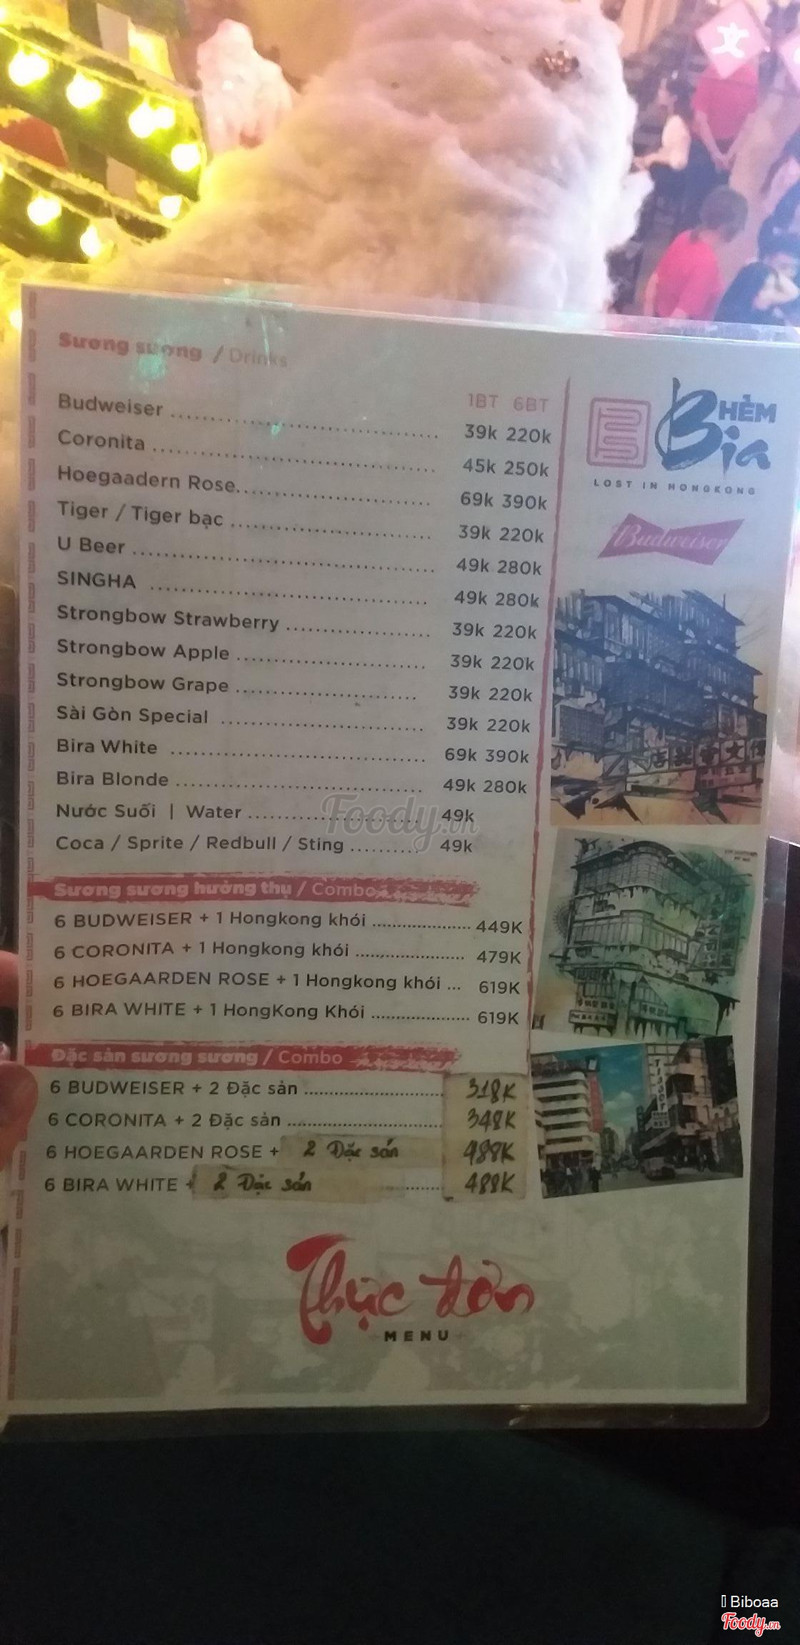 文
Sương sương / Drinks
1BT 6BT
Budweiser ........ 39k 220k
Coronita ........ 45k 250k
Hoegaadern Rose........ 69k 390k
Tiger / Tiger bạc ........ 39k 220k
U Beer ........ 49k 280k
SINGHA ........ 49k 280k
Strongbow Strawberry ........ 39k 220k
Strongbow Apple ........ 39k 220k
Strongbow Grape ........ 39k 220k
Sài Gòn Special ........ 39k 220k
Bira White ........ 69k 390k
Bira Blonde ........ 49k 280k
Nước Suối | Water ........ 49k
Coca / Sprite / Redbull / Sting ........ 49k
Sương sương hưởng thụ / Combo
6 BUDWEISER + 1 Hongkong khói ........ 449K
6 CORONITA + 1 Hongkong khói ........ 479K
6 HOEGAARDEN ROSE + 1 Hongkong khói ... 619K
6 BIRA WHITE + 1 HongKong Khói ........ 619K
Đặc sản sương sương / Combo
6 BUDWEISER + 2 Đặc sản ........ 318K
6 CORONITA + 2 Đặc sản ........ 348K
6 HOEGAARDEN ROSE + 2 Đặc sản 488K
6 BIRA WHITE + 2 Đặc sản ........ 488K
Thực đơn
MENU
HẺM
Bia
LOST IN HONGKONG
Budweiser
Foody.vn
Biboaa
Foody.vn